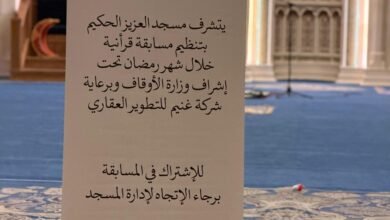 يتشرف مسجد العزيز الحكيم
بتنظيم مسابقة قرآنية
خلال شهر رمضان تحت
إشراف وزارة الأوقاف وبرعاية
شركة غنيم للتطوير العقاري
للإشتراك في المسابقة
برجاء الإتجاه لإدارة المسجد